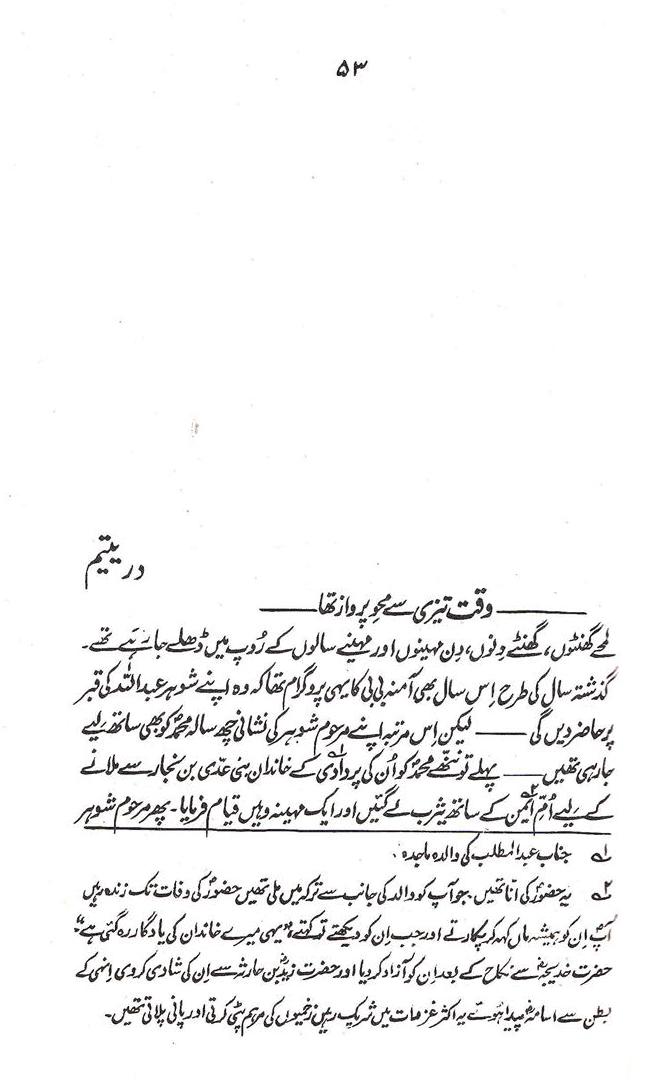 ۵۳
در یتیم
وقت تیزی سے محوِ پرواز تھا
لمحے گھنٹوں، گھنٹے دنوں، دِن مہینوں اور مہینے سالوں کے رُوپ میں ڈھلے جا رہے تھے۔
گذشتہ سال کی طرح اِس سال بھی آمنہ بی بی کا یہی پروگرام تھا کہ وہ اپنے شوہر عبداللہ کی قبر
پر حاضر دیں گی ——— لیکن اِس مرتبہ اپنے مرحوم شوہر کی نشانی چھ سالہ محمدؐ کو بھی ساتھ لیے
جا رہی تھیں ——— پہلے تو ننھے محمدؐ کو اُن کی پردادی۱؎ کے خاندان بنی عدی بن نجار سے ملانے
کے لیے اُمِّ ایمن۲؎ کے ساتھ یثرب لے گئیں اور ایک مہینہ وہیں قیام فرمایا۔ پھر مرحوم شوہر
۱؎ جناب عبدالمطلب کی والدہ ماجدہ۔
۲؎ یہ حضورؐ کی انّا تھیں۔ جو آپ کو والد کی جانب سے ترکہ میں ملی تھیں حضورؐ کی وفات تک زندہ رہیں
آپؐ اِن کو ہمیشہ ماں کہہ کر پکارتے اور جب اِن کو دیکھتے تو کہتے، "یہی میرے خاندان کی یادگار رہ گئی ہے"۔
حضرت خدیجہؓ سے نکاح کے بعد اِن کو آزاد کر دیا اور حضرت زیدؓ بن حارثہ سے اِن کی شادی کر دی اِنہی کے
بطن سے اسامہؓ پیدا ہوئے یہ اکثر غزوات میں شریک رہیں زخمیوں کی مرہم پٹی کرتی اور پانی پلاتی تھیں۔